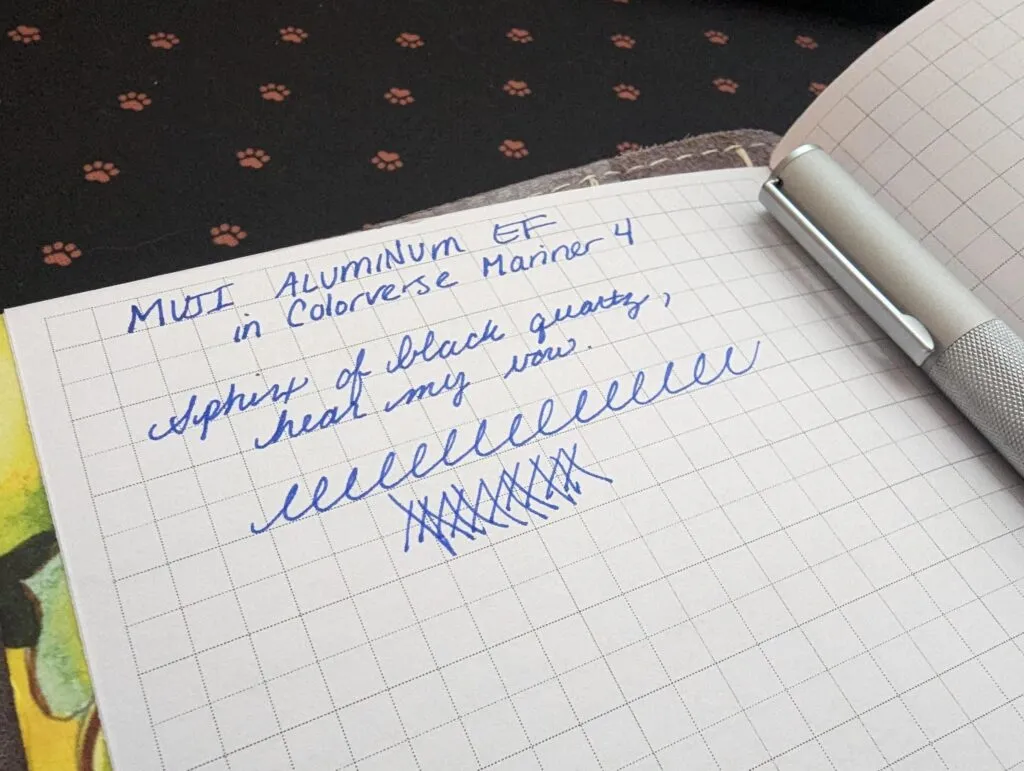 MUJI ALUMINUM EF
in Colorverse Mariner 4
Sphinx of black quartz,
hear my vow.